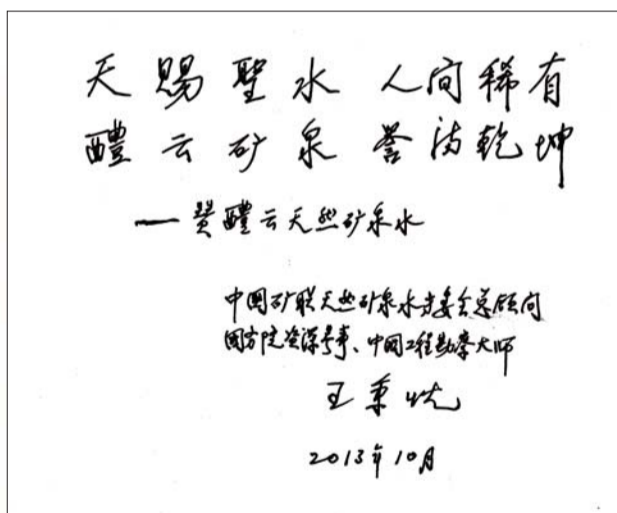 天赐聖水 人间稀有
醴云矿泉 誉满乾坤
——贊醴云天然矿泉水
中国矿联天然矿泉水专委会总顾问
国务院资深参事、中国工程勘察大师
王秉忱
2013年10月